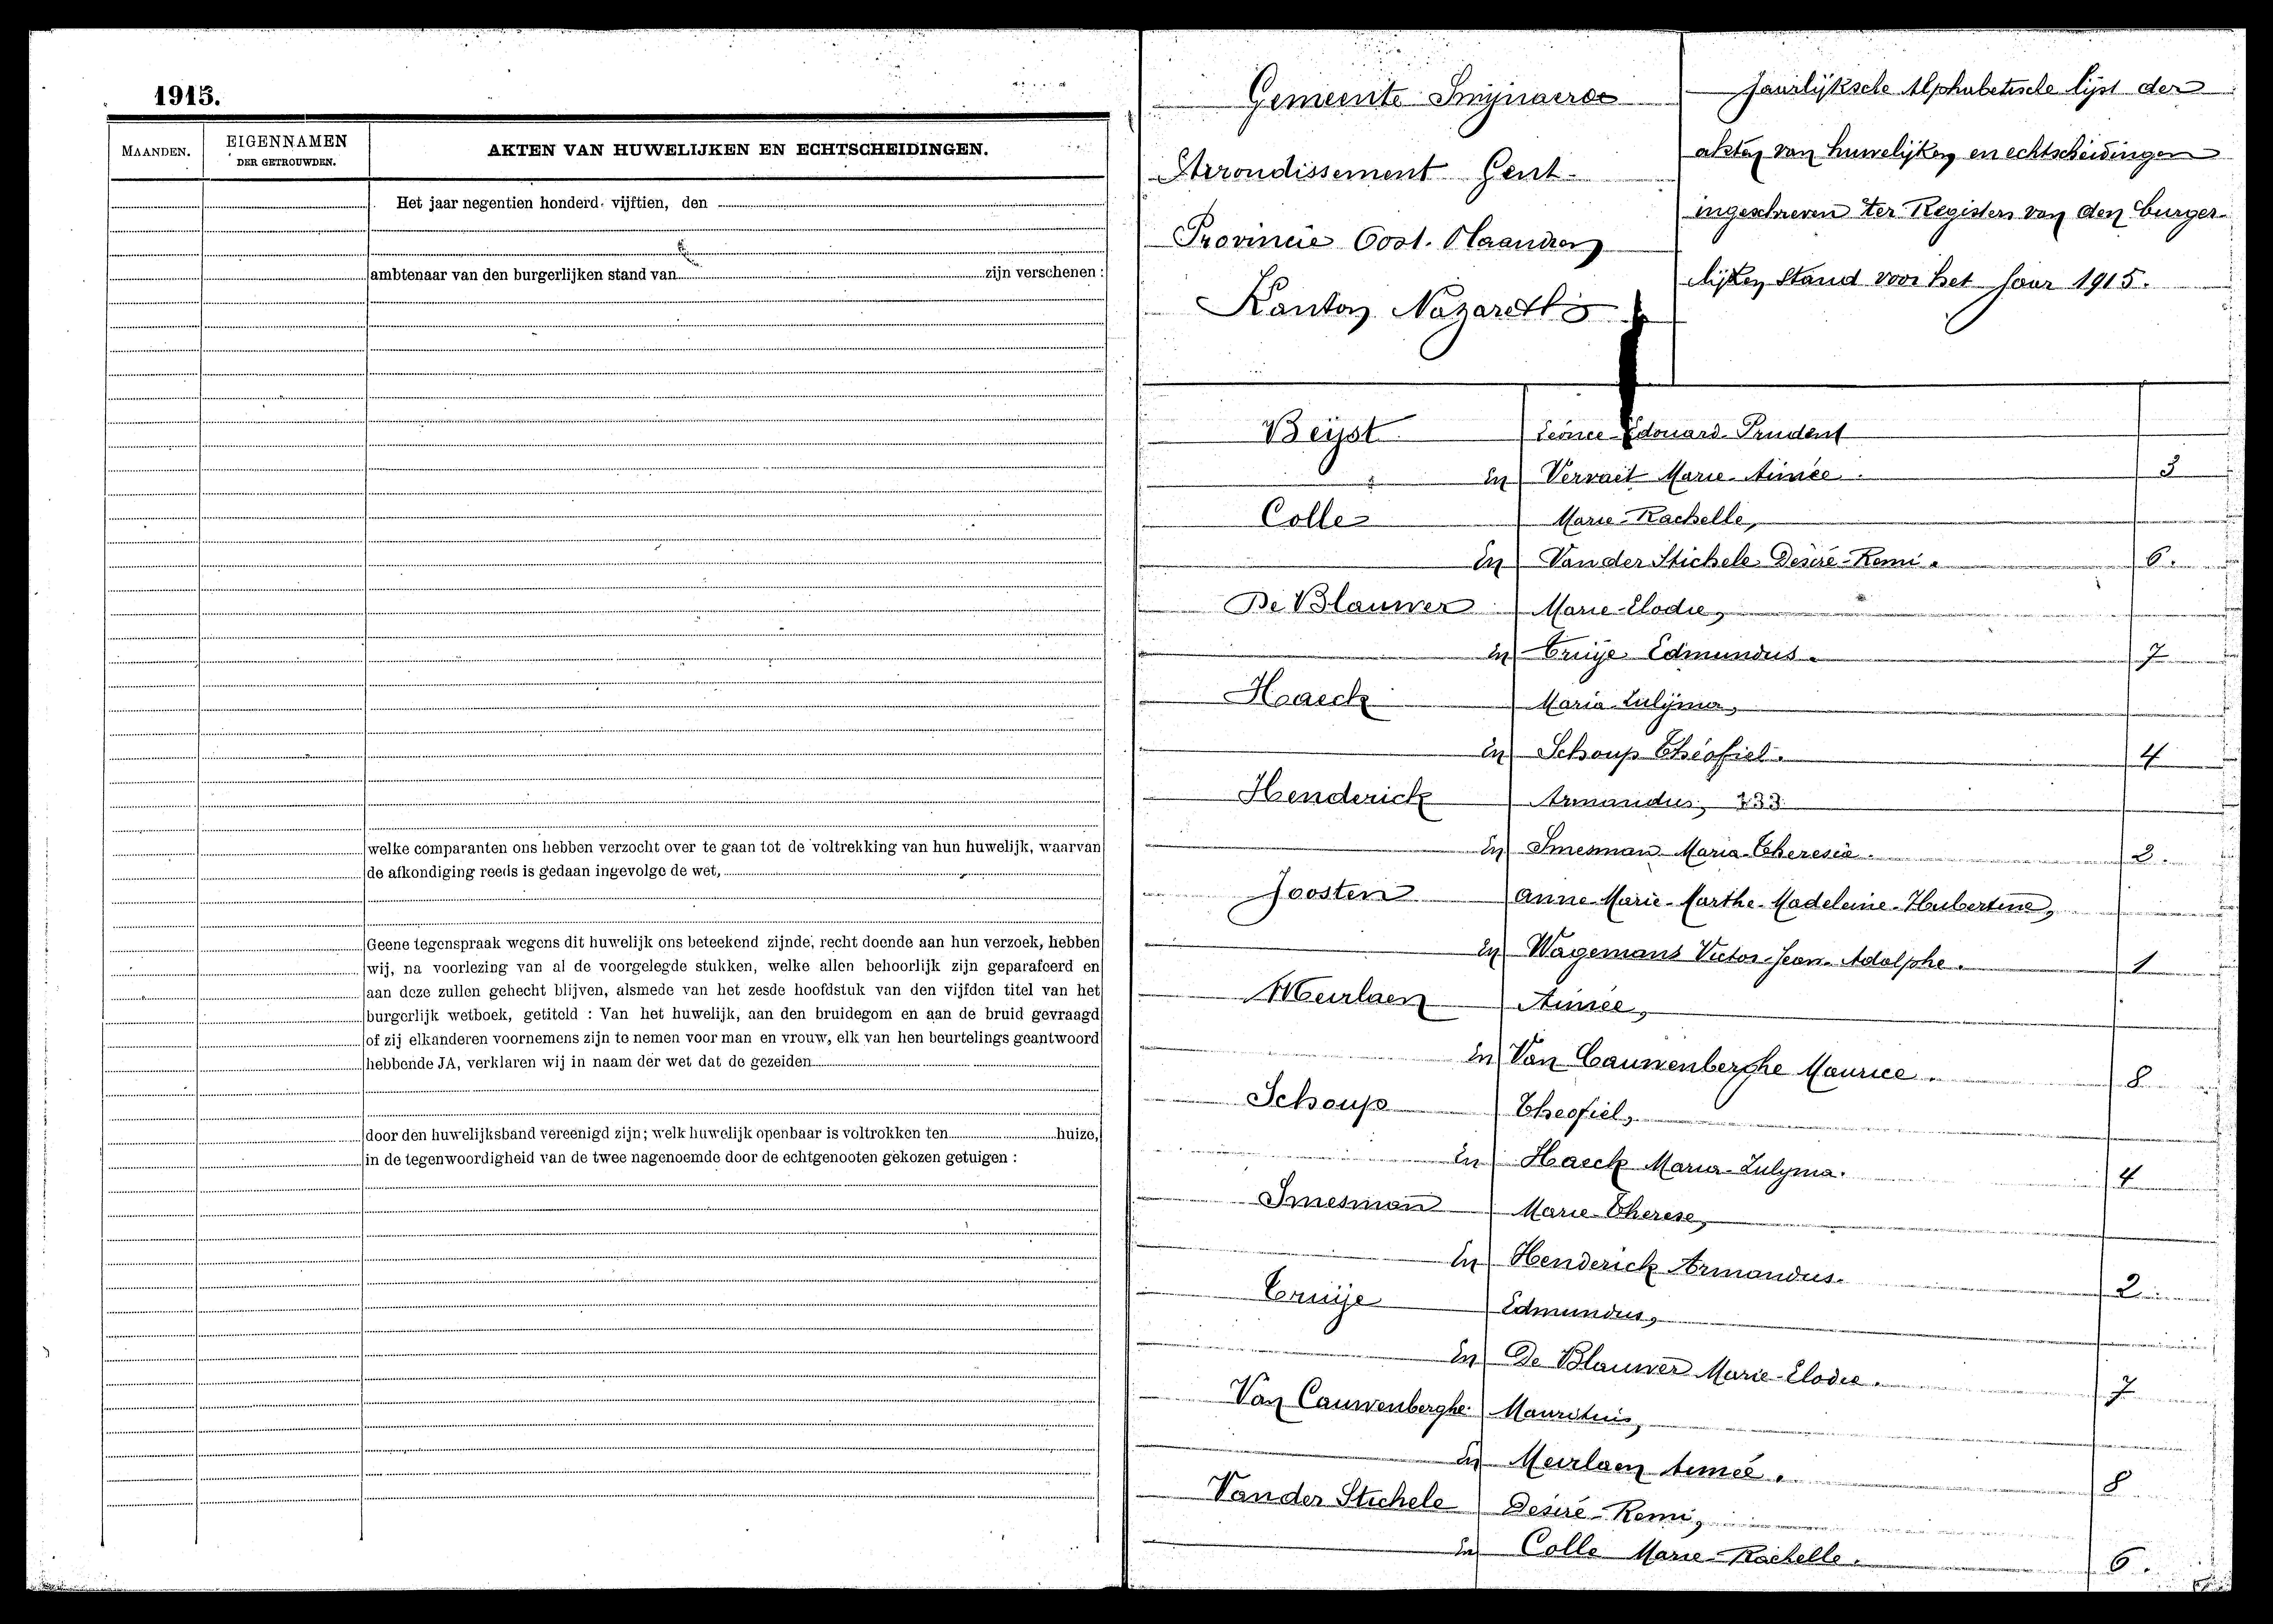 1915.
MAANDEN.
EIGENNAMEN
DER GETROUWDEN.
AKTEN VAN HUWELIJKEN EN ECHTSCHEIDINGEN.
Het jaar negentien honderd vijftien, den
ambtenaar van den burgerlijken stand van zijn verschenen :
welke comparanten ons hebben verzocht over te gaan tot de voltrekking van hun huwelijk, waarvan
de afkondiging reeds is gedaan ingevolge de wet,
Geene tegenspraak wegens dit huwelijk ons beteekend zijnde, recht doende aan hun verzoek, hebben
wij, na voorlezing van al de voorgelegde stukken, welke allen behoorlijk zijn geparafeerd en
aan deze zullen gehecht blijven, alsmede van het zesde hoofdstuk van den vijfden titel van het
burgerlijk wetboek, getiteld : Van het huwelijk, aan den bruidegom en aan de bruid gevraagd
of zij elkanderen voornemens zijn te nemen voor man en vrouw, elk van hen beurtelings geantwoord
hebbende JA, verklaren wij in naam der wet dat de gezeiden
door den huwelijksband vereenigd zijn; welk huwelijk openbaar is voltrokken ten huize,
in de tegenwoordigheid van de twee nagenoemde door de echtgenooten gekozen getuigen :
Gemeente Smijnaerde
Arrondissement Gent
Provincie Oost. Vlaanderen
Kanton Nazareth
Jaarlijksche Alphabetische lijst der
akten van huwelijken en echtscheidingen
ingeschreven ter Registers van den burger-
lijken Stand voor het Jaar 1915.
Beijst Léonce-Edouard-Prudent
En Vervaet Marie-Aimée. 3
Colle Marie-Rachelle,
En Van der Stichele Désiré-Remi. 6.
De Blauwer Marie-Elodie,
En Cruije Edmundus. 7
Haeck Maria-Zulijma,
En Schoup Théofiel. 4
Henderick Armandus, 133
En Smesman Maria-Theresia. 2.
Joosten Anne-Marie-Marthe-Madeleine-Hubertine,
En Wagemans Victor-Jean-Adolphe. 1
Meirlaen Aimée,
En Van Cauwenberghe Maurice. 8
Schoup Theofiel,
En Haeck Maria-Zulyma. 4
Smesman Marie-Therese,
En Henderick Armandus. 2
Cruije Edmundus,
En De Blauwer Marie-Elodie. 7
Van Cauwenberghe Mauritius,
En Meirlaen Aimeé. 8
Van der Stichele Désiré-Remi,
En Colle Marie-Rachelle. 6.